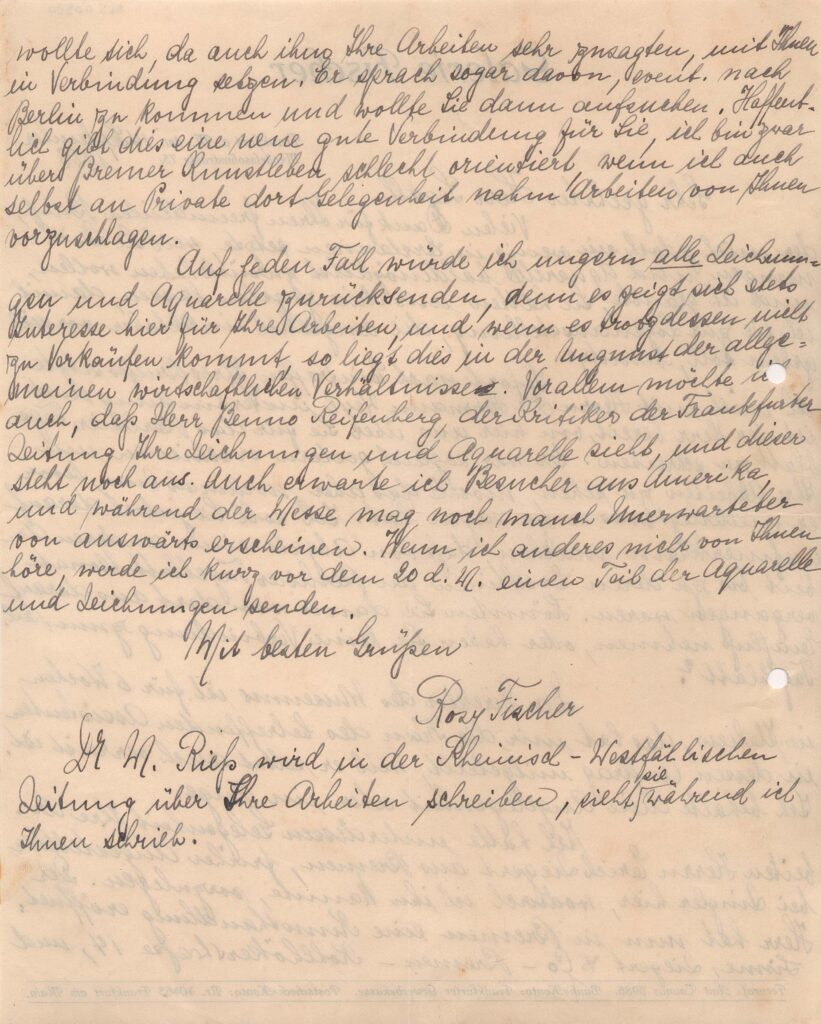 wollte sich, da auch ihm Ihre Arbeiten sehr zusagten, mit Ihnen
in Verbindung setzen. Er sprach sogar davon, event. nach
Berlin zu kommen und wollte Sie dann aufsuchen. Hoffent-
lich gibt dies eine neue gute Verbindung für Sie, ich bin zwar
über Bremer Kunstleben schlecht orientiert, wenn ich auch
selbst an Private dort Gelegenheit nahm Arbeiten von Ihnen
vorzuschlagen.
Auf jeden Fall würde ich ungern alle Zeichnun-
gen und Aquarelle zurücksenden, denn es zeigt sich stets
Interesse hier für Ihre Arbeiten, und wenn es trotzdessen nicht
zu Verkäufen kommt, so liegt dies in der Ungunst der allge-
meinen wirtschaftlichen Verhältnisse. Vorallem möchte ich
auch, daß Herr Benno Reifenberg, der Kritiker der Frankfurter
Zeitung Ihre Zeichnungen und Aquarelle sieht, und dieser
steht noch aus. Auch erwarte ich Besucher aus Amerika,
und während der Messe mag noch manch Unerwarteter
von auswärts erscheinen. Wenn ich anderes nicht von Ihnen
höre, werde ich kurz vor dem 20 d. M. einen Teil der Aquarelle
und Zeichnungen senden.
Mit besten Grüßen
Rosy Fischer
Dr M. Rieß wird in der Rheinisch-Westfählischen
Zeitung über Ihre Arbeiten schreiben, sieht sie während ich
Ihnen schrieb.